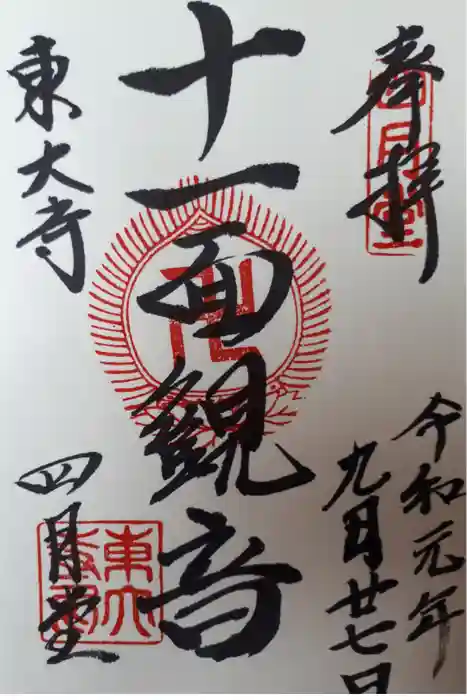 奉拝
四月堂
令和元年
九月廿七日
十一面観音
卍
東大寺
四月堂